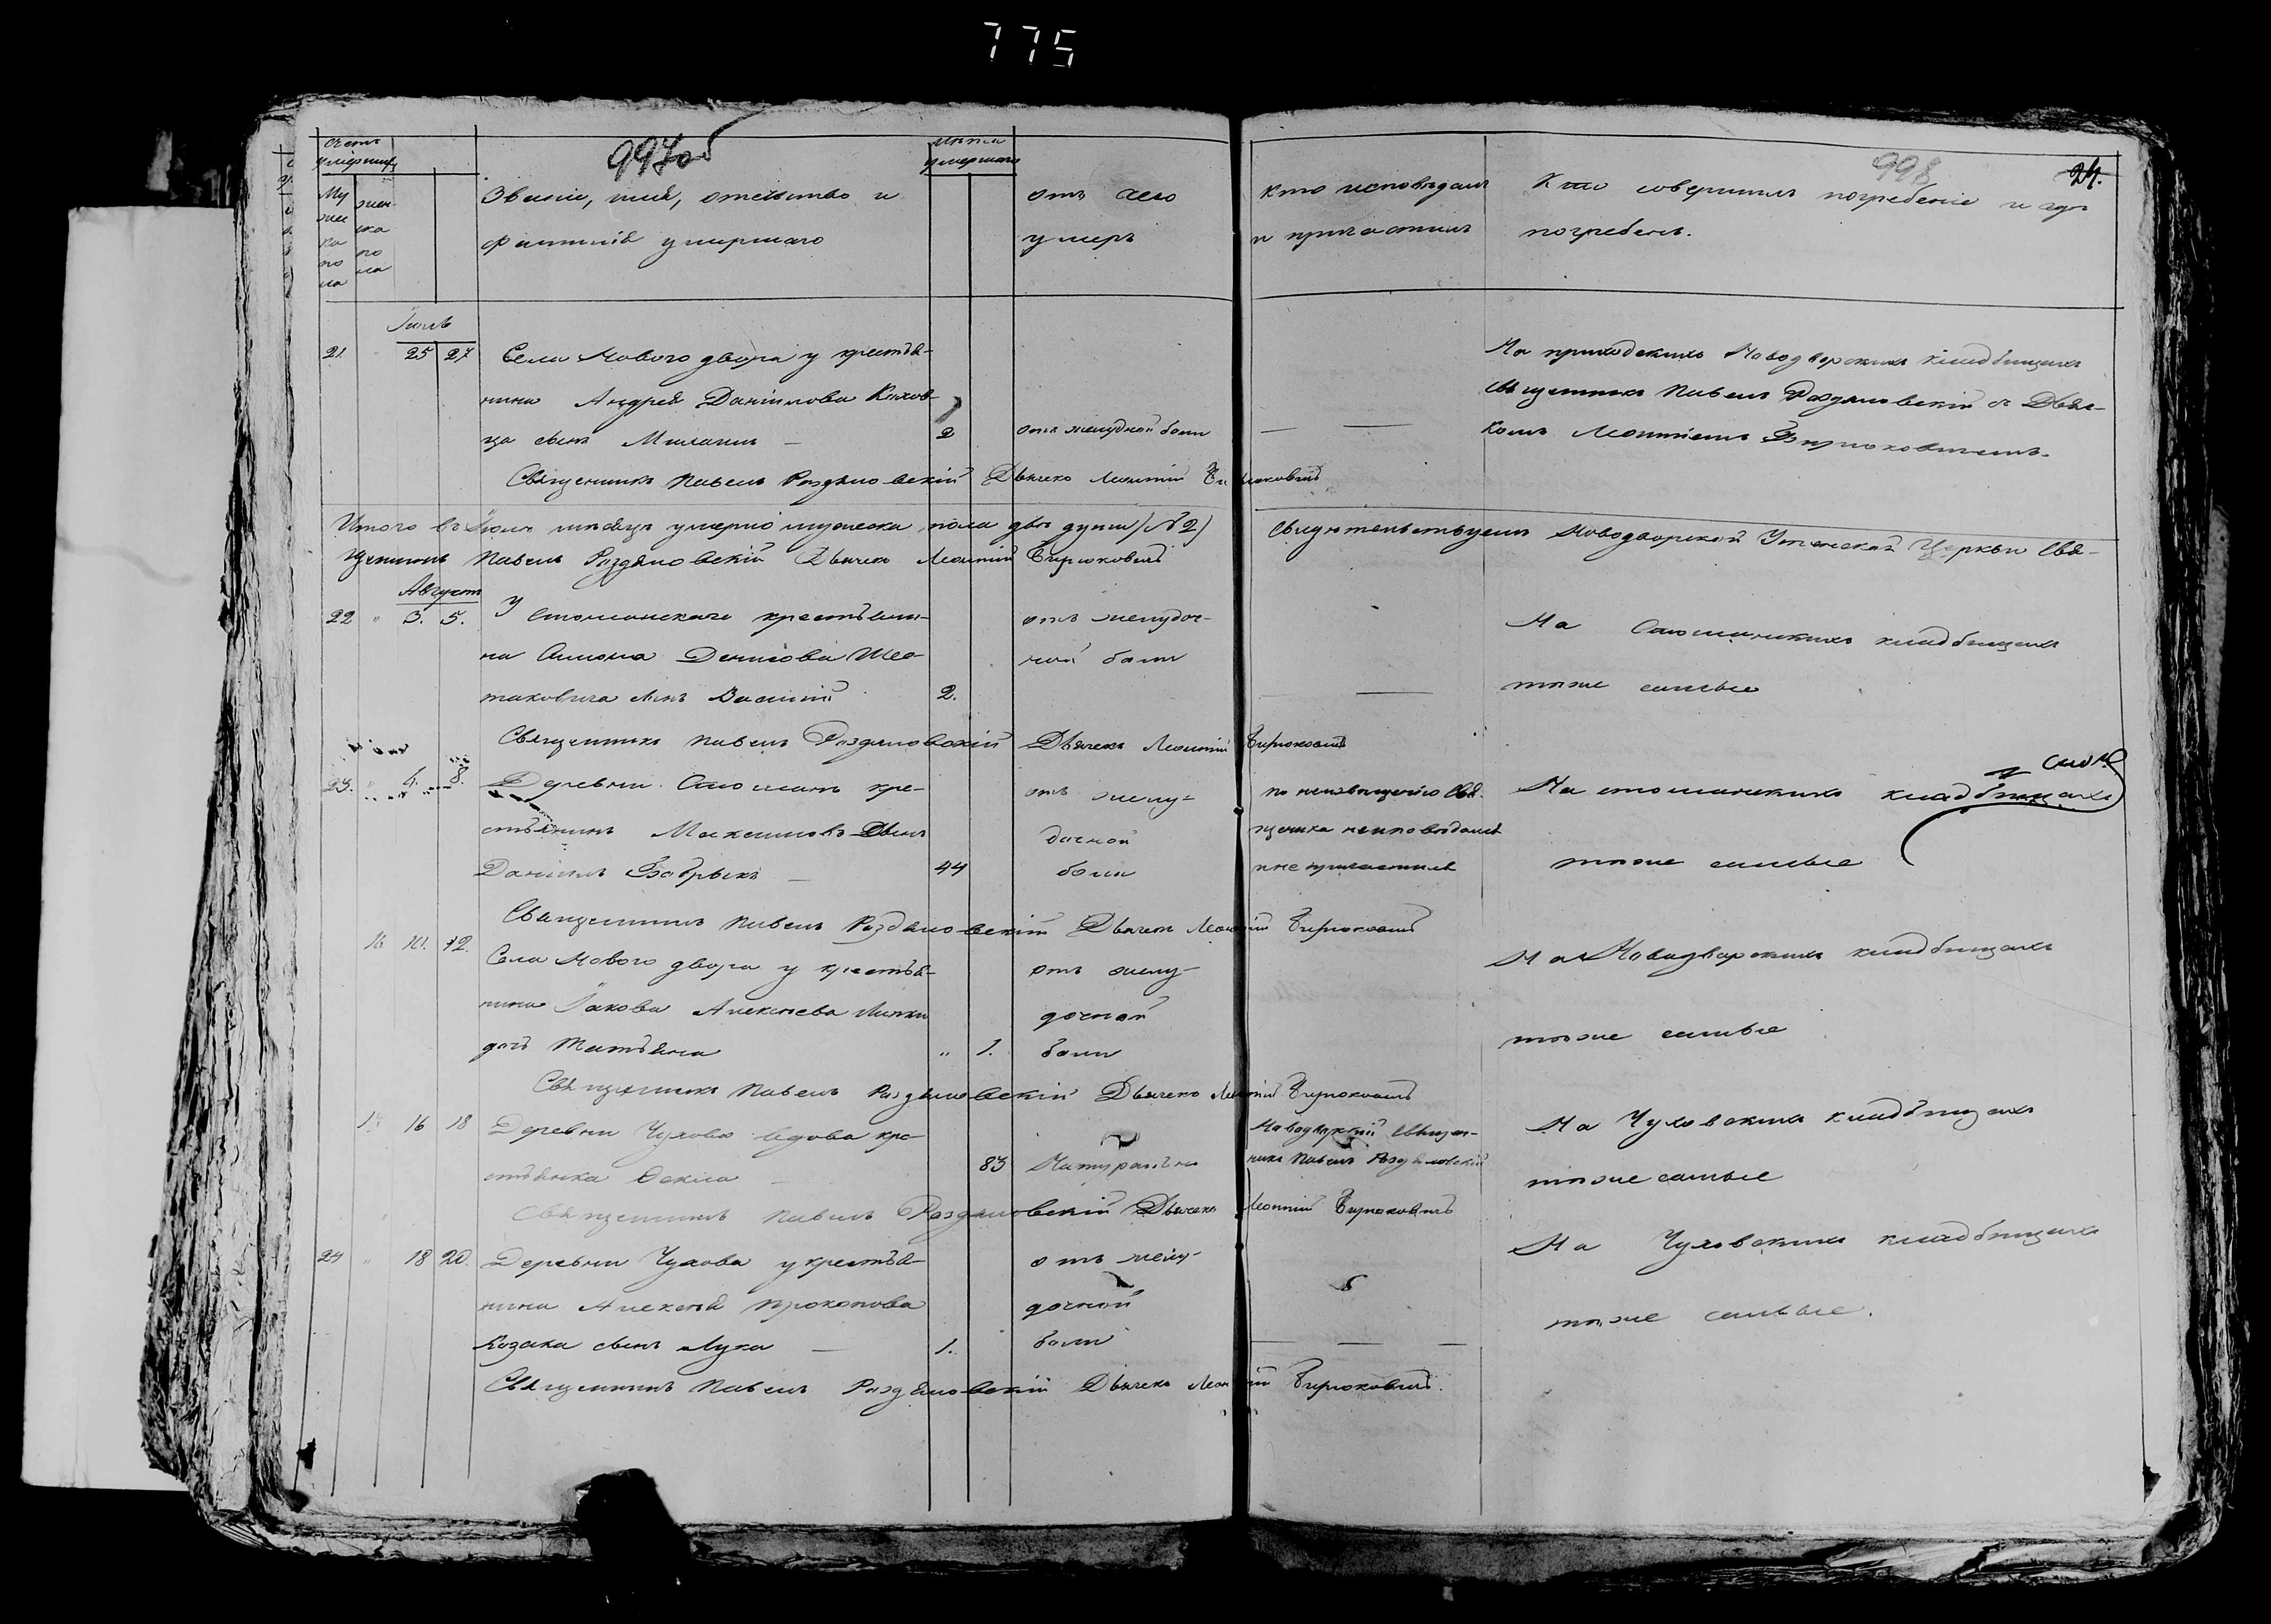 775
997об
998
24.
Счетъ умершихъ
Мужеска пола
женска пола
Званіе, имя, отечество и
фамилія умершаго
лѣта умершаго
отъ чего
умеръ
Кто исповѣдалъ
и прічастилъ
Кто совершилъ погребеніе и гдѣ
погребенъ.
Іюль
21. " 25 27 Села Нового двора у крестья-
нина Андрея Даніилова
ца сынъ Михаилъ — 2 отъ желудной боли — —
На приходскихъ Новодворскихъ кладбищахъ
священникъ Павелъ Раздяловскій съ Дьяч-
комъ Леонтіемъ Бирюковичемъ.
Священникъ Павелъ Раздяловскій Дьячекъ Леонтій Бирюковичъ
Итого въ Іюлѣ мѣсяцѣ умерло мужеска пола двѣ души (№ 2) Свидѣтельствуемъ Новодворской Успенской Церкви Свя-
щенникъ Павелъ Раздяловскій Дьячекъ Леонтій Бирюковичъ
Августъ
22 " 3. 5. У Стошанскаго крестьяни-
на Симона Денисова Шес-
таковича сынъ Василій 2.
отъ желудоч-
ной боли
—
На Стошанскихъ кладбищахъ
тѣже самые
Священникъ Павелъ Раздяловскій Дьячекъ Леонтій Бирюковичъ
23. " 4. 8. Деревни Стошанъ кре-
стьянинъ Максимовъ сынъ
Даніилъ Бобрыкъ — 44
отъ желу-
дочной
боли
по неизвѣщенію Свя-
щеника неисповѣданъ
и не прічастилъ
На стошанскихъ кладбищахъ
тѣже самые
Священникъ Павелъ Раздяловскій Дьячекъ Леонтій Бирюковичъ
16 10. 12. Села Нового двора у крестья-
нина Іакова Алексѣева
дочь Татьяна " 1.
отъ желу-
дочной
боли
На Новодворскихъ кладбищахъ
тѣже самые
Священникъ ПавелъРаздяловскій Дьячекъ Леонтій Бирюковичъ
16 18 Деревни Чухова вдова кре-
стьянка Ѳекла — 83 Натурально
Новодворскій Священ-
никъ Павелъ Раздяловскій
На Чуховскихъ кладбищахъ
тѣже самые
Священникъ Павелъ Раздяловскій Дьячекъ Леонтій Бирюковичъ
24 " 18 20. Деревни Чухова у крестья-
нина Алексѣя Прокопова
Козака сынъ Лука — 1.
отъ желу-
дочной
боли
— — —
На Чуховскихъ кладбищахъ
тѣже самые.
Священникъ Павелъ Раздяловскій Дьячекъ Леонтій Бирюковичъ.